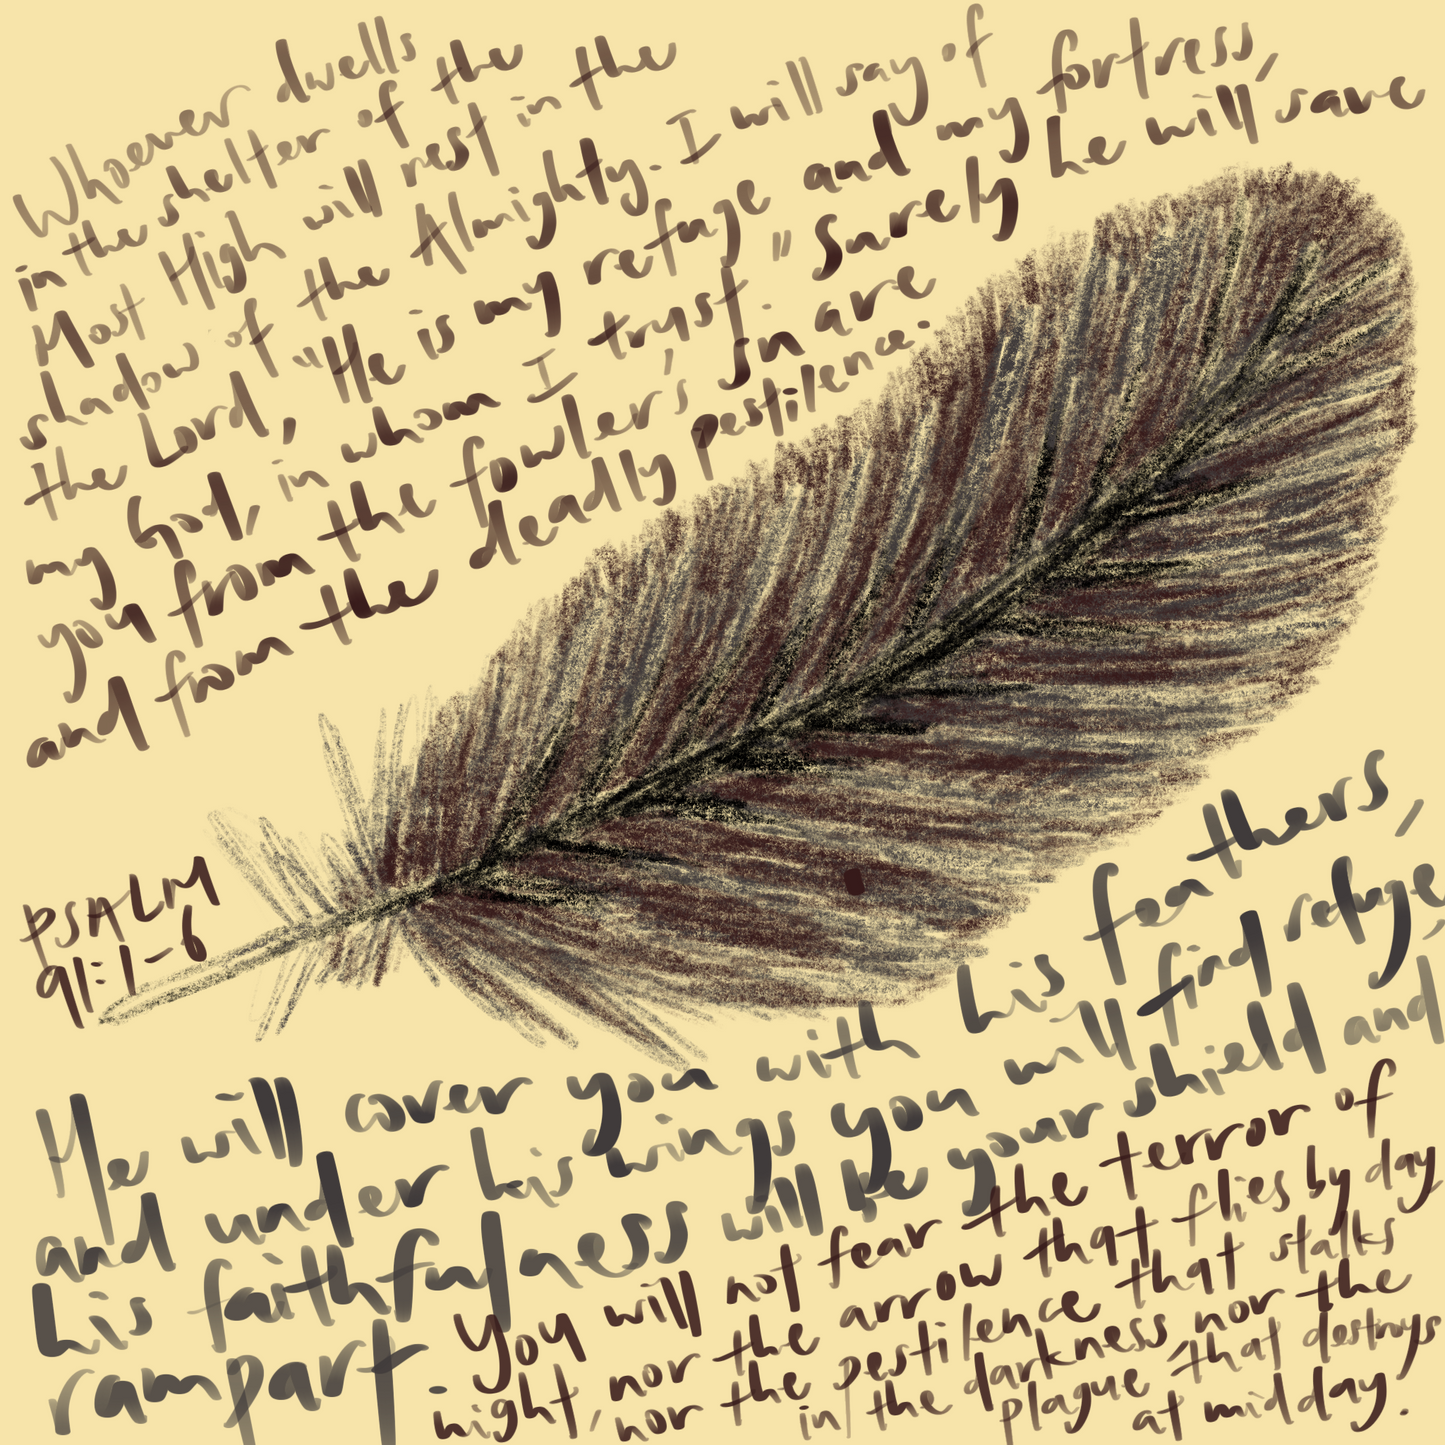 Whoever dwells
in the shelter of the
Most High will rest in the
shadow of the Almighty. I will say of
the Lord, "He is my refuge and my fortress,
my God, in whom I trust." Surely he will save
you from the fowler's snare
and from the deadly pestilence.
PSALM
91:1-6
He will cover you with his feathers,
and under his wings you will find refuge,
his faithfulness will be your shield and
rampart. You will not fear the terror of
night, nor the arrow that flies by day
nor the pestilence that stalks
in the darkness, nor the
plague that destroys
at midday.